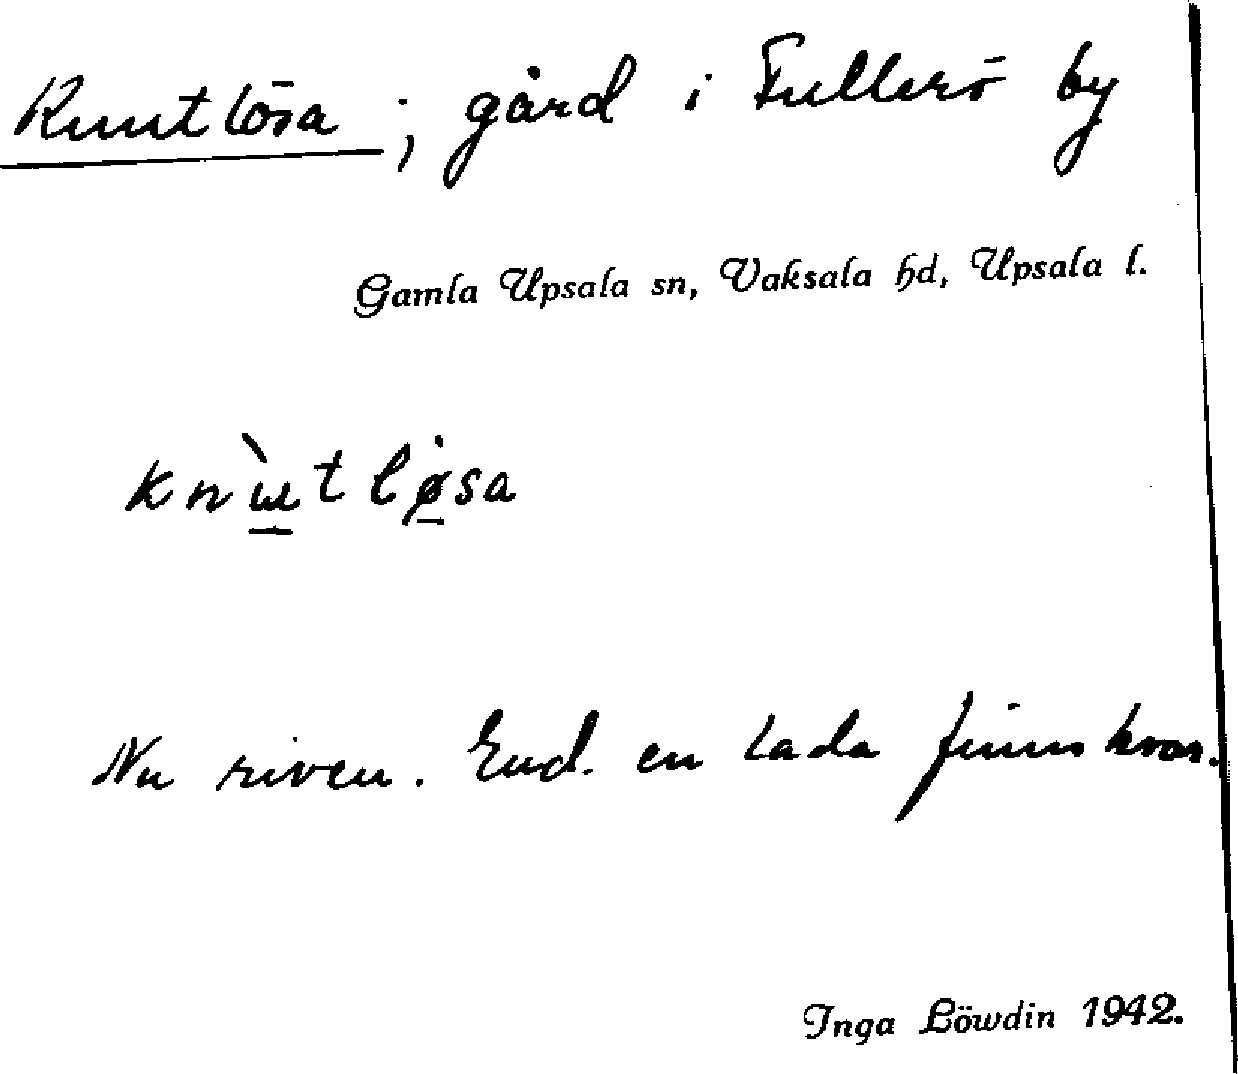 Knutlösa ; gård i Fullerö by
Gamla Upsala sn, Vaksala hd, Upsala l.
knɯ̀tlø̇sa
Nu riven. End. en lada finns kvar.
Inga Löwdin 1942.